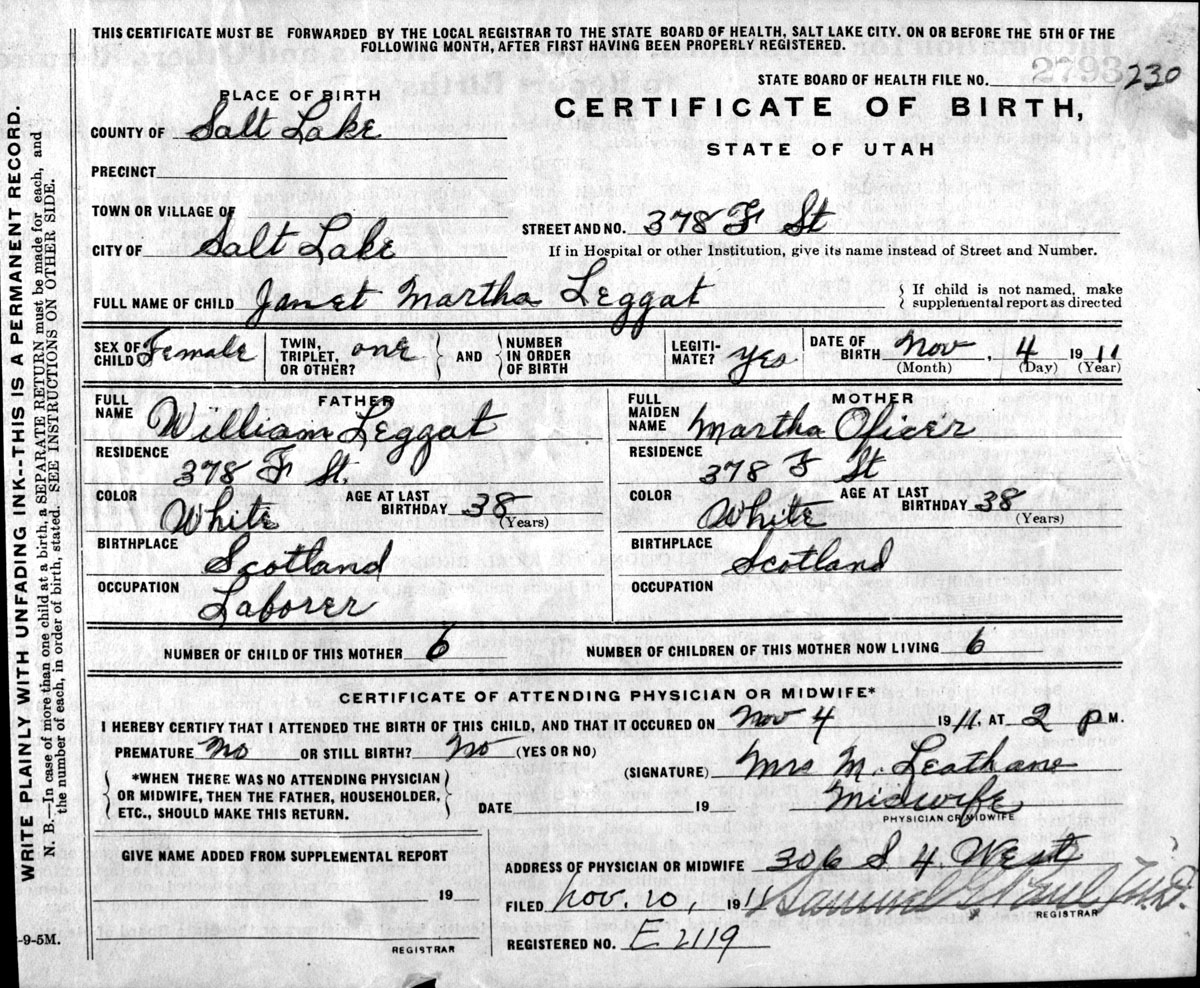 THIS CERTIFICATE MUST BE FORWARDED BY THE LOCAL REGISTRAR TO THE STATE BOARD OF HEALTH, SALT LAKE CITY. ON OR BEFORE THE 5TH OF THE
FOLLOWING MONTH, AFTER FIRST HAVING BEEN PROPERLY REGISTERED.
STATE BOARD OF HEALTH FILE NO. 2793 230
PLACE OF BIRTH
CERTIFICATE OF BIRTH,
COUNTY OF Salt Lake
STATE OF UTAH
PRECINCT
TOWN OR VILLAGE OF
STREET AND NO. 378 F St
CITY OF Salt Lake
If in Hospital or other Institution, give its name instead of Street and Number.
FULL NAME OF CHILD Janet Martha Leggat
{ If child is not named, make
supplemental report as directed
SEX OF CHILD Female
TWIN, TRIPLET, OR OTHER? one
AND
NUMBER IN ORDER OF BIRTH
LEGITI-MATE? yes
DATE OF BIRTH Nov, 4 1911
(Month) (Day) (Year)
FATHER
FULL NAME William Leggat
RESIDENCE 378 F St.
COLOR White
AGE AT LAST BIRTHDAY 38
(Years)
BIRTHPLACE Scotland
OCCUPATION Laborer
MOTHER
FULL MAIDEN NAME Martha Oficer
RESIDENCE 378 F St
COLOR White
AGE AT LAST BIRTHDAY 38
(Years)
BIRTHPLACE Scotland
OCCUPATION
NUMBER OF CHILD OF THIS MOTHER 6
NUMBER OF CHILDREN OF THIS MOTHER NOW LIVING 6
CERTIFICATE OF ATTENDING PHYSICIAN OR MIDWIFE*
I HEREBY CERTIFY THAT I ATTENDED THE BIRTH OF THIS CHILD, AND THAT IT OCCURED ON Nov 4 1911. AT 2 P M.
PREMATURE No OR STILL BIRTH? No (YES OR NO)
(SIGNATURE) Mrs M. Leathane
*WHEN THERE WAS NO ATTENDING PHYSICIAN
OR MIDWIFE, THEN THE FATHER, HOUSEHOLDER,
ETC., SHOULD MAKE THIS RETURN.
DATE 19
Midwife
PHYSICIAN OR MIDWIFE
GIVE NAME ADDED FROM SUPPLEMENTAL REPORT
19
REGISTRAR
ADDRESS OF PHYSICIAN OR MIDWIFE 306 S. 4 West
FILED Nov. 10, 1911 Samuel G Paul M.D.
REGISTRAR
REGISTERED NO. E 2119
-9-5M.
WRITE PLAINLY WITH UNFADING INK--THIS IS A PERMANENT RECORD.
N. B.—In case of more than one child at a birth, a SEPARATE RETURN must be made for each, and
the number of each, in order of birth, stated. SEE INSTRUCTIONS ON OTHER SIDE.